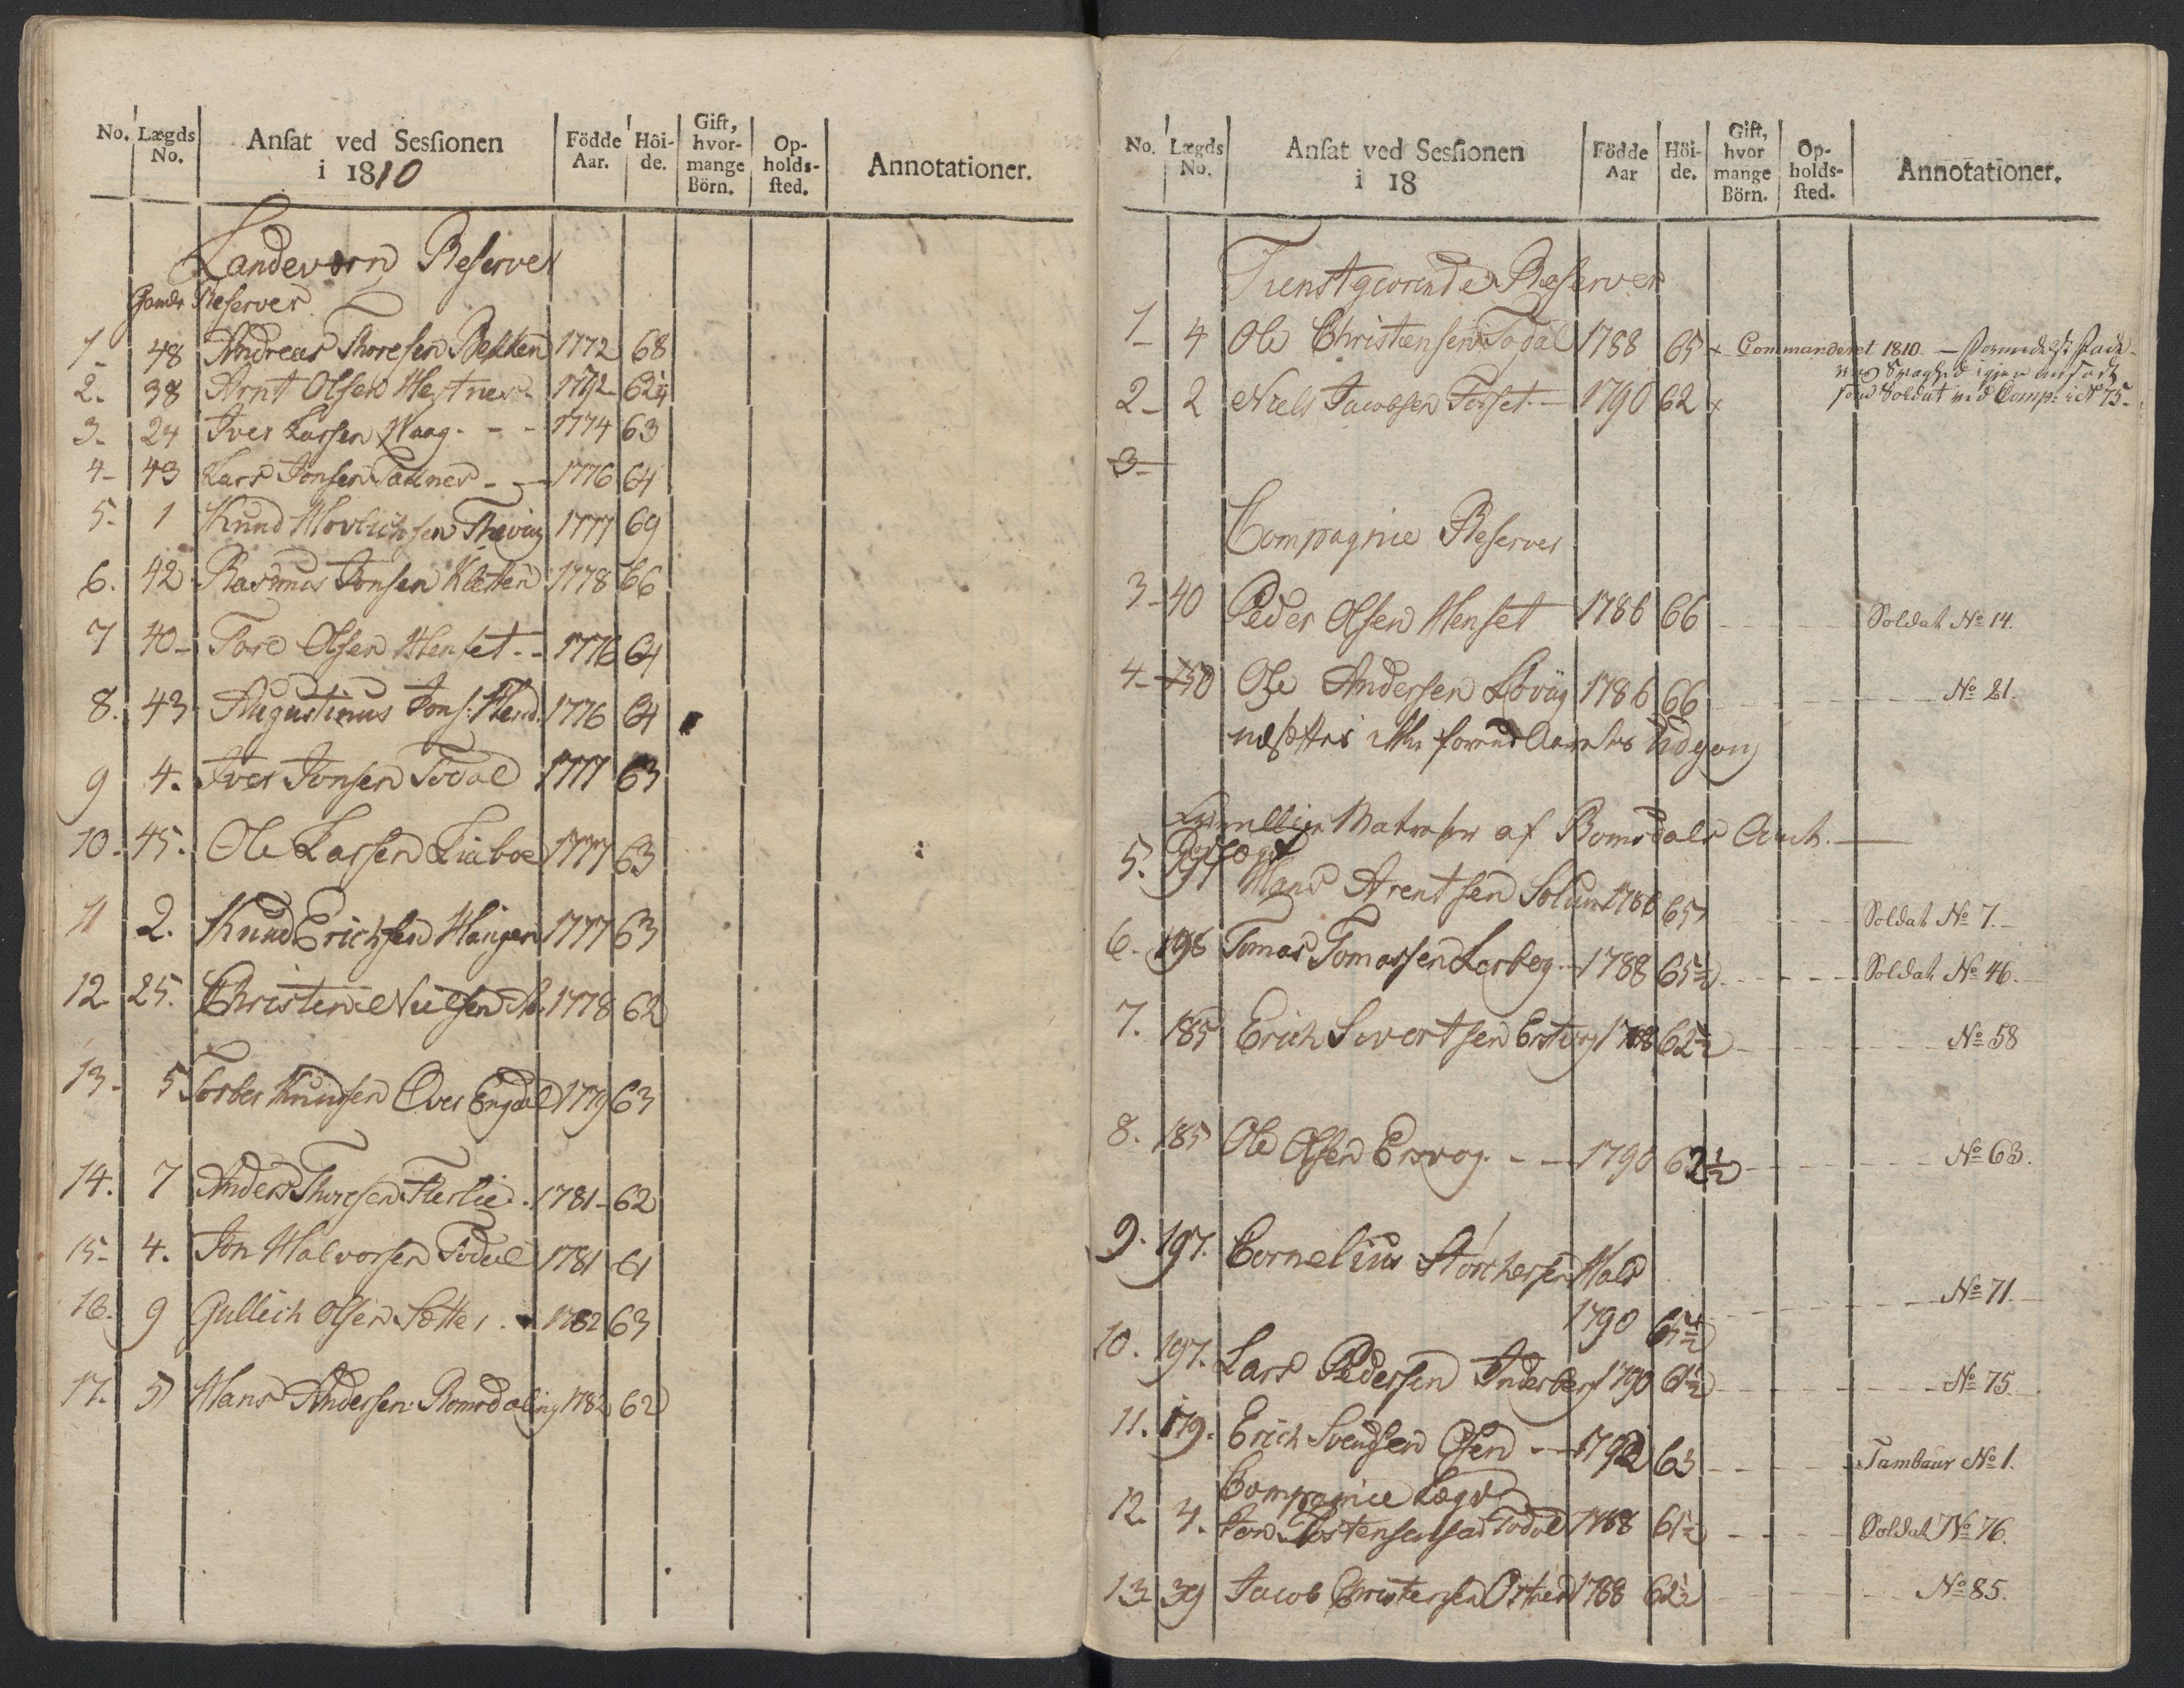 No. Lægds No. Ansat ved Sessionen i 1810 Födde Aar. Höide. Gift, hvormange Börn. Opholdssted. Annotationer.
Landeværn Reserver
Gamle Reserver
1- 48 Andreas Thoresen Bekken 1772 68
2. 38 Arnt Olsen Hestnes 1772 62¼
3. 24 Iver Larsen Waag - - - 1774 63
4- 43 Lars Jonsen - - 1776 64
5- 1 Knud 1777 69
6. 42 Rasmus Jonsen Kletten 1778 66
7 40- Tore Olsen Henset - - 1776 64
8. 43 Augustinus Jons: 1776 64
9 4. Iver Jonsen Todal 1777 63
10. 45. Ole Larsen Liaboe 1777 63
11 2. Knud Erichsen Hangen 1777 63
12. 25. Christen Nielsen 1778 62
13- 5 Torber Knudsen Over Engdal 1779 63
14. 7 Anders Thoresen 1781- 62
15- 4. Jon Halvorsen Todal 1781 61
16. 9 Gullich Olsen Sætter 1782 63
17. 5 Hans Andersen Romsdaling 1782 62
No. Lægds No. Ansat ved Sessionen i 18 Födde Aar Höide. Gift, hvor mange Börn. Opholdssted. Annotationer.
Tienstgiörende Reserver
1- 4 Ole Christensen Todal 1788 65 x Commanderet 1810. —
igien ansadt
som Soldat ved Comp: i No 75-
2- 2 Niels Jacobsen Forset - 1790 62 x
3-
Compagnie Reserver
3- 40 Peder Olsen Henset 1786 66 Soldat No 14.
4- 30 Ole Andersen 1786 66 No 21.
af Romsdals Amt. —
5. 197 Hans Arentsen Solum 1786 65 Soldat No 7.-
6- 198 Tomas Tomassen 1788 65½ Soldat No 46.
7. 185 Erich Sivertsen 1788 62½ No 58
8. 185 Ole Olsen Eresvog. - - 1790 62½ No 63.
9. 197. Cornelius
1790 65½ No 71.
10. 197. Lars Pedersen 1790 61½ No 75.
11. 179. Erich Svendsen Osen - 1792 63 Tambour No 1.
Compagnie Lægd
12. 4. Jon Todal 1788 61½ Soldat No 76.
13. 39 Jacob Christensen 1788 62½ No 85.